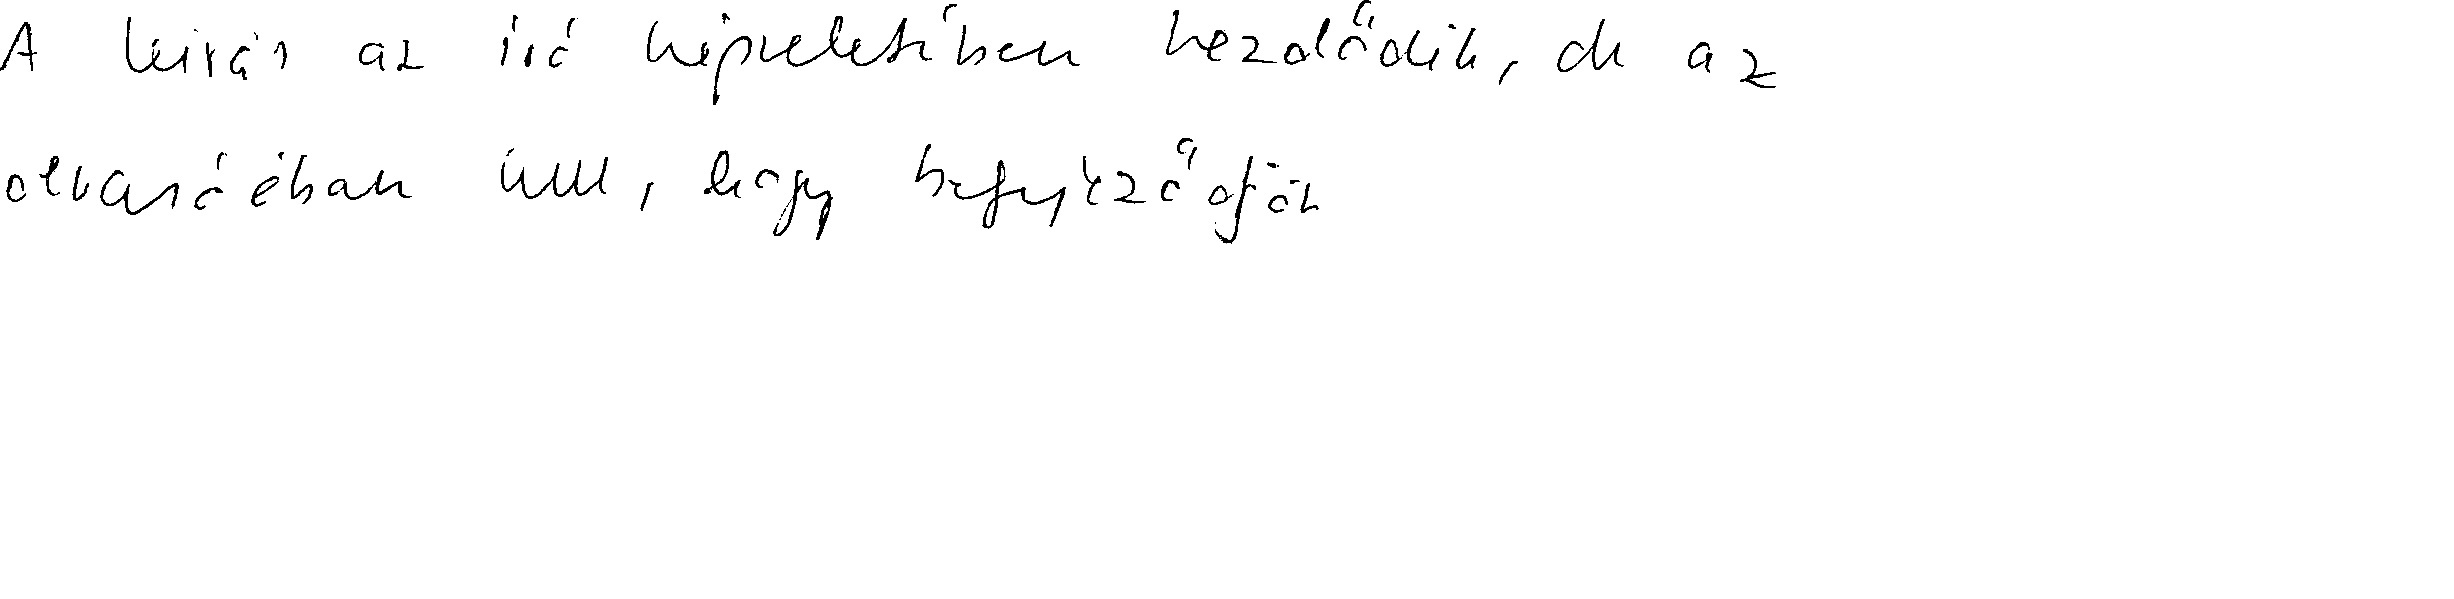 A leírás az író képzeletében kezdődik, de az
olvasóéban kell, hogy befejeződjön